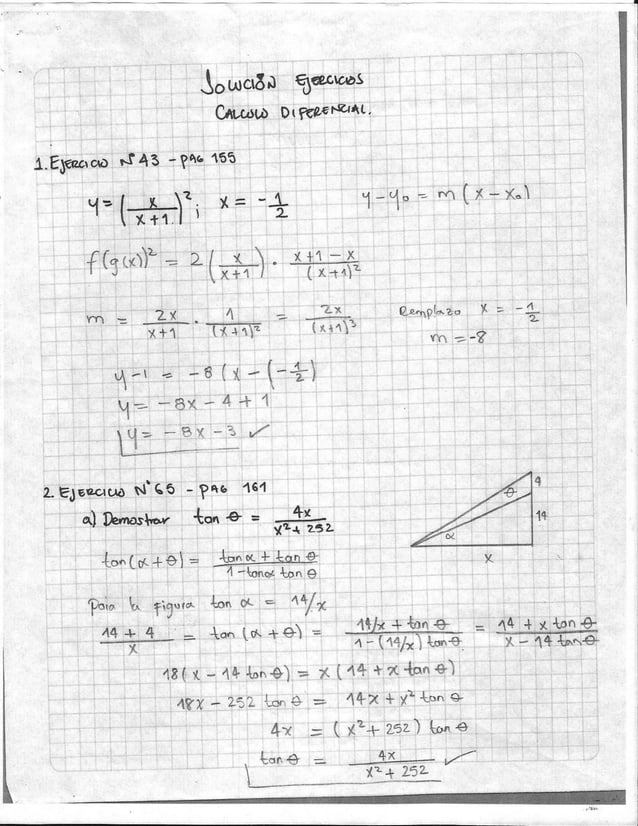 SOLUCIÓN EJERCICIOS
CALCULO DIFERENCIAL.
1. EJERCICIO N° 43 - PAG 155
y = (x/(x+1))²; x = -1/2    y - y₀ = m(x - x₀)
f(g(x))² = 2(x/(x+1)) · (x+1-x)/(x+1)²
m = 2x/(x+1) · 1/(x+1)² = 2x/(x+1)³    Remplazo x = -1/2
m = -8
y - 1 = -8(x - (-1/2)
y = -8x - 4 + 1
y = -8x - 3 ✓
2. EJERCICIO N° 65 - PAG 161
a) Demostrar tan θ = 4x/(x² + 252)
θ 4
α 14
x
tan(α + θ) = (tan α + tan θ)/(1 - tan α tan θ)
Para la figura tan α = 14/x
(14 + 4)/x = tan(α + θ) = (14/x + tan θ)/(1 - (14/x) tan θ) = (14 + x tan θ)/(x - 14 tan θ)
18(x - 14 tan θ) = x(14 + x tan θ)
18x - 252 tan θ = 14x + x² tan θ
4x = (x² + 252) tan θ
tan θ = 4x/(x² + 252) ✓